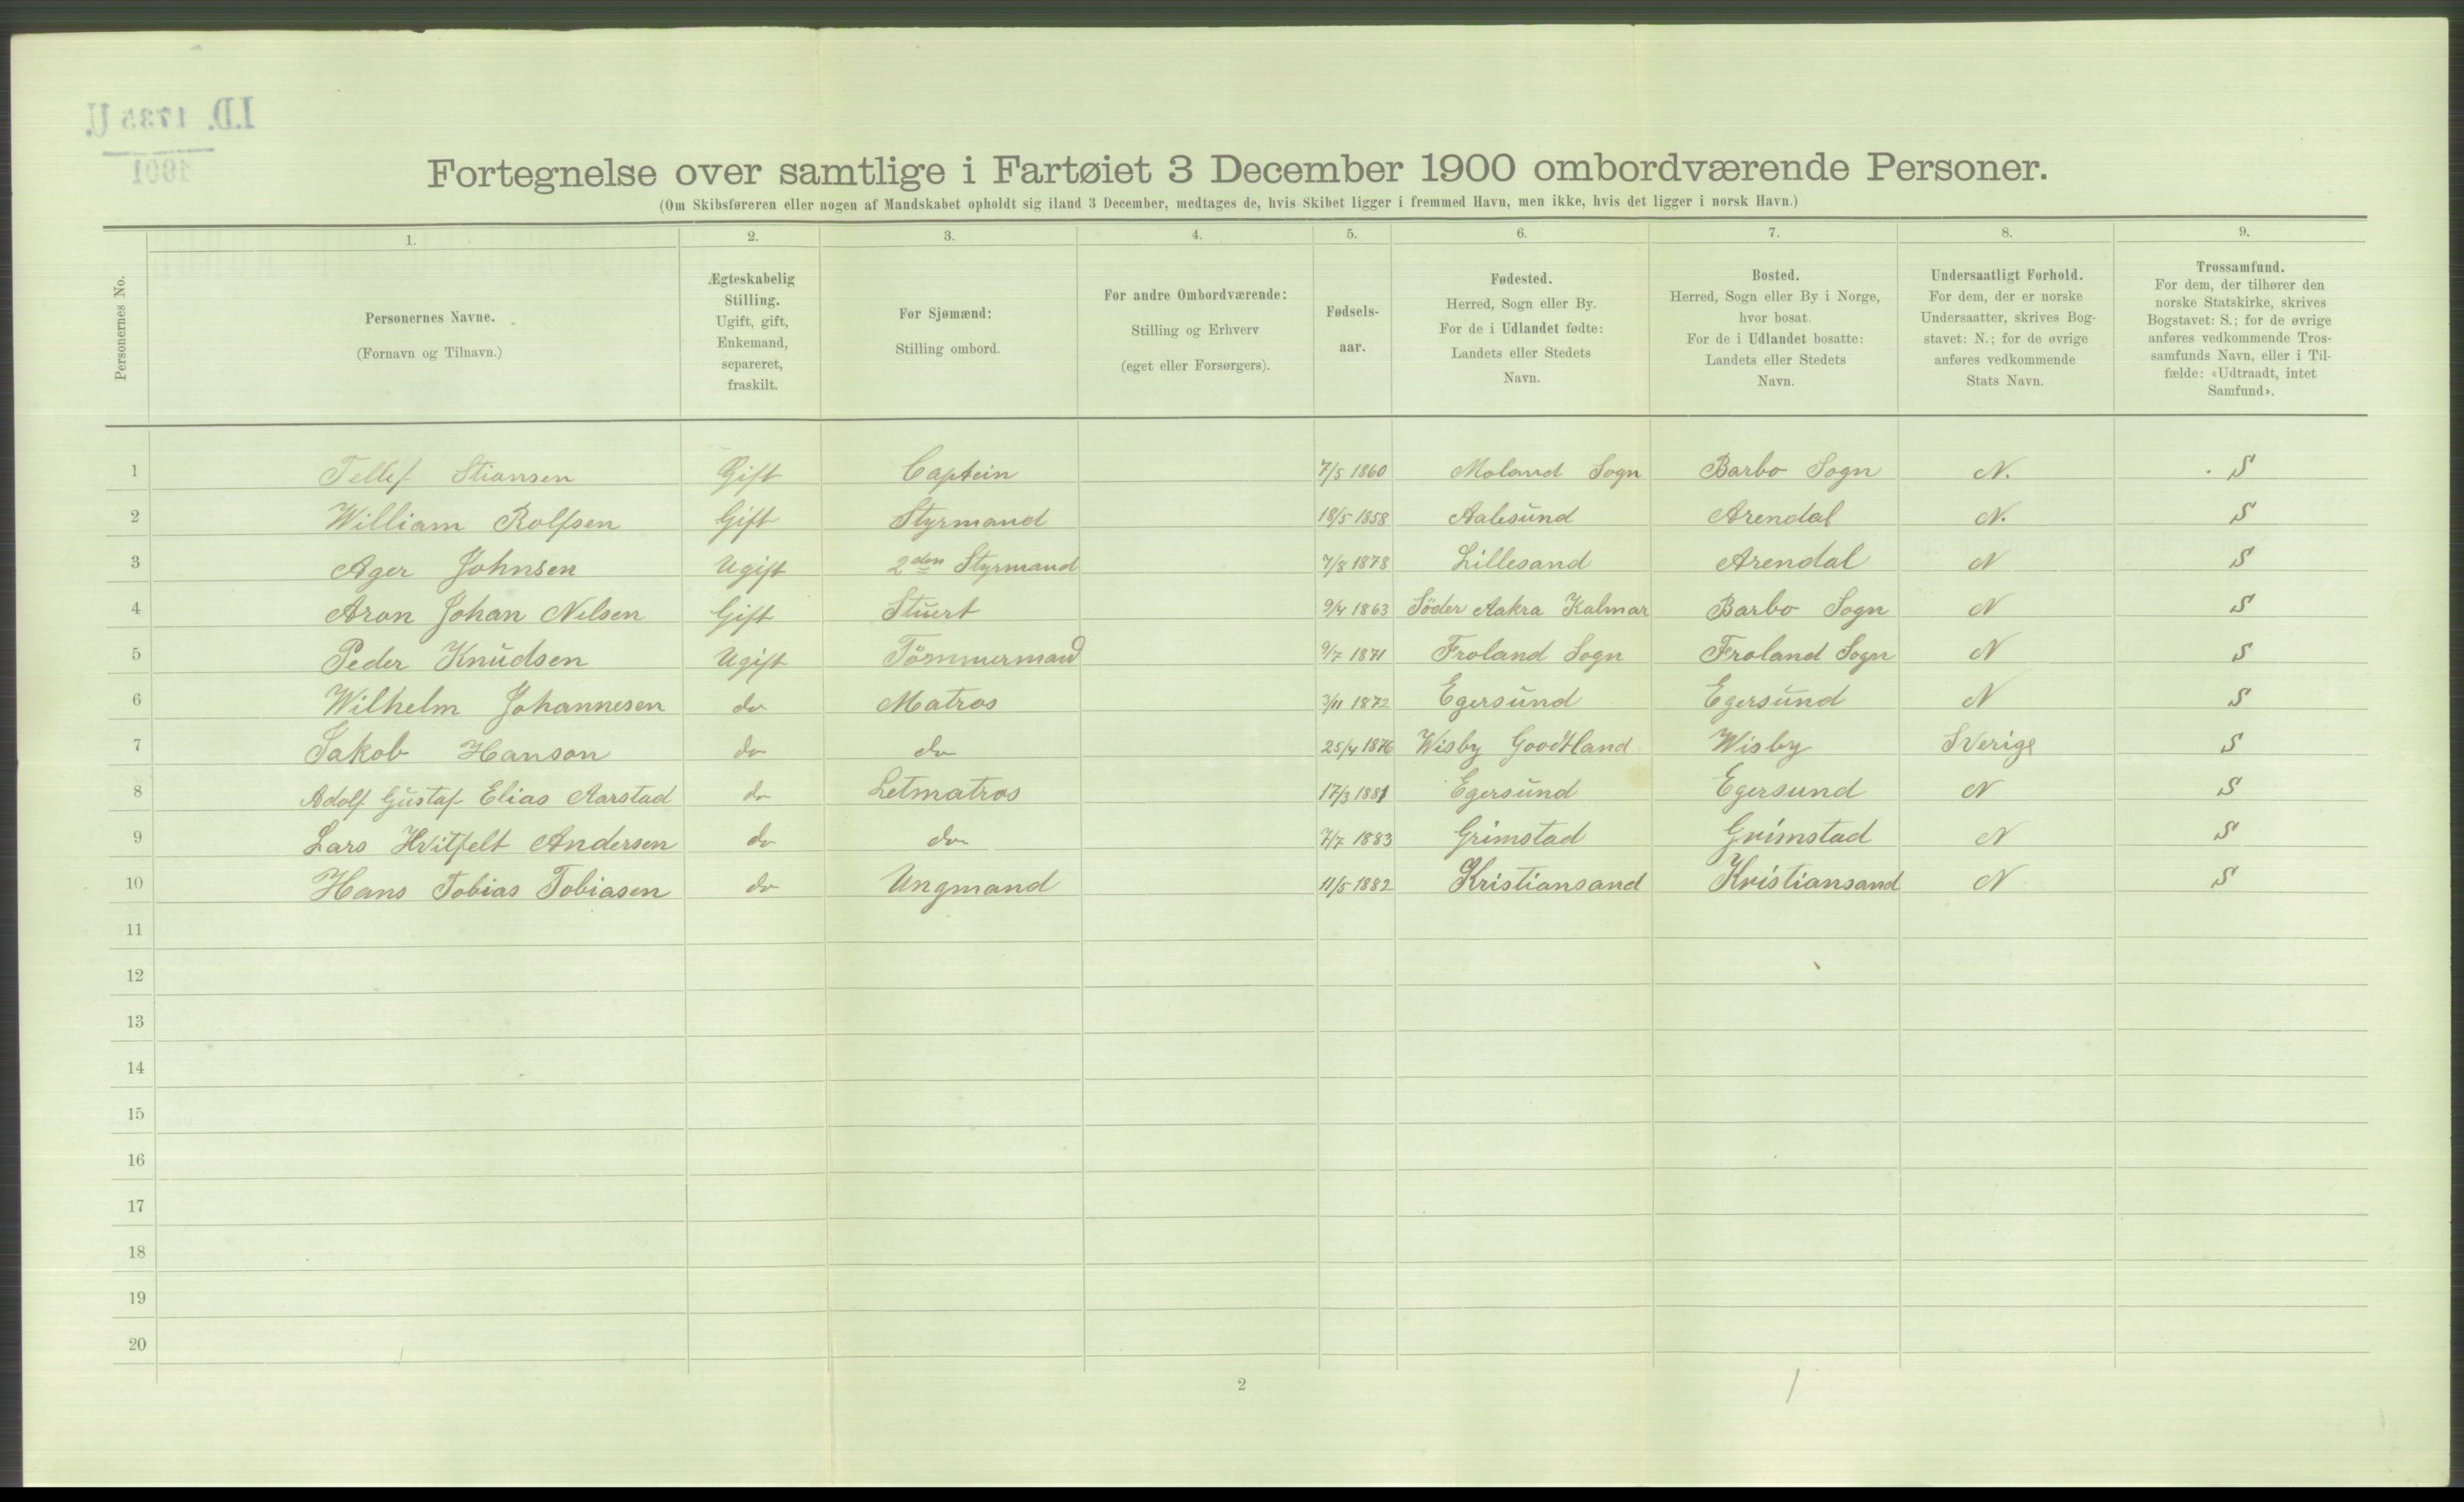 I.D. 1735 U.
1901
Fortegnelse over samtlige i Fartøiet 3 December 1900 ombordværende Personer.
(Om Skibsføreren eller nogen af Mandskabet opholdt sig iland 3 December, medtages de, hvis Skibet ligger i fremmed Havn, men ikke, hvis det ligger i norsk Havn.)
Personernes No.
1.
Personernes Navne.
(Fornavn og Tilnavn.)
2.
Ægteskabelig
Stilling.
Ugift, gift,
Enkemand,
separeret,
fraskilt.
3.
For Sjømænd:
Stilling ombord.
4.
For andre Ombordværende:
Stilling og Erhverv
(eget eller Forsørgers).
5.
Fødsels-
aar.
6.
Fødested.
Herred, Sogn eller By.
For de i Udlandet fødte:
Landets eller Stedets
Navn.
7.
Bosted.
Herred, Sogn eller By i Norge,
hvor bosat.
For de i Udlandet bosatte:
Landets eller Stedets
Navn.
8.
Undersaatligt Forhold.
For dem, der er norske
Undersaatter, skrives Bog-
stavet: N.; for de øvrige
anføres vedkommende
Stats Navn.
9.
Trossamfund.
For dem, der tilhører den
norske Statskirke, skrives
Bogstavet: S.; for de øvrige
anføres vedkommende Tros-
samfunds Navn, eller i Til-
fælde: «Udtraadt, intet
Samfund».
1 Tellef Stiansen Gift Captein 7/5 1860 Moland Sogn Barbo Sogn N. S
2 William Rolfsen Gift Styrmand 18/5 1858 Aalesund Arendal N. S
3 Ager Johnsen Ugift 2den Styrmand 7/8 1878 Lillesand Arendal N S
4 Aron Johan Nilsen Gift Stuert 9/4 1863 Söder Aakra Kalmar Barbo Sogn N S
5 Peder Knudsen Ugift Tömmermand 9/7 1871 Froland Sogn Froland Sogn N S
6 Wilhelm Johannesen do Matros 3/11 1872 Egersund Egersund N S
7 Jakob Hanson do do 25/4 1876 Wisby Goodtland Wisby Sverige S
8 Adolf Gustaf Elias Aarstad do Letmatros 17/3 1881 Egersund Egersund N S
9 Lars Hvitfelt Andersen do do 7/7 1883 Grimstad Grimstad N S
10 Hans Tobias Tobiasen do Ungmand 11/5 1882 Kristiansand Kristiansand N S
11
12
13
14
15
16
17
18
19
20
2